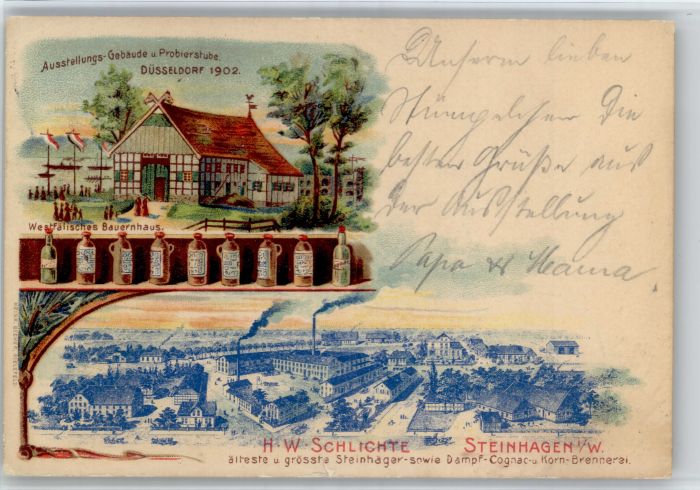 Ausstellungs-Gebäude u Probierstube.
DÜSSELDORF 1902.
Westfälisches Bauernhaus.
Unserm lieben
die
besten Grüße aus
der Ausstellung
Papa & Mama.
H. W. SCHLICHTE STEINHAGEN i/W.
älteste u grösste Steinhäger- sowie Dampf- Cognac- u Korn- Brennerei.